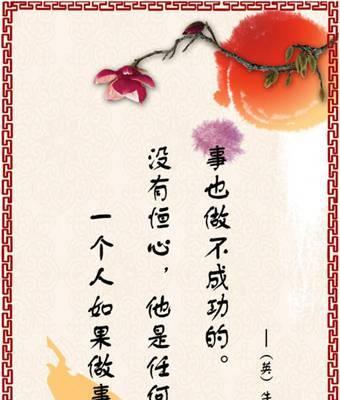 一个人如果做事
没有恒心，他是任何
事也做不成功的。
—（英）